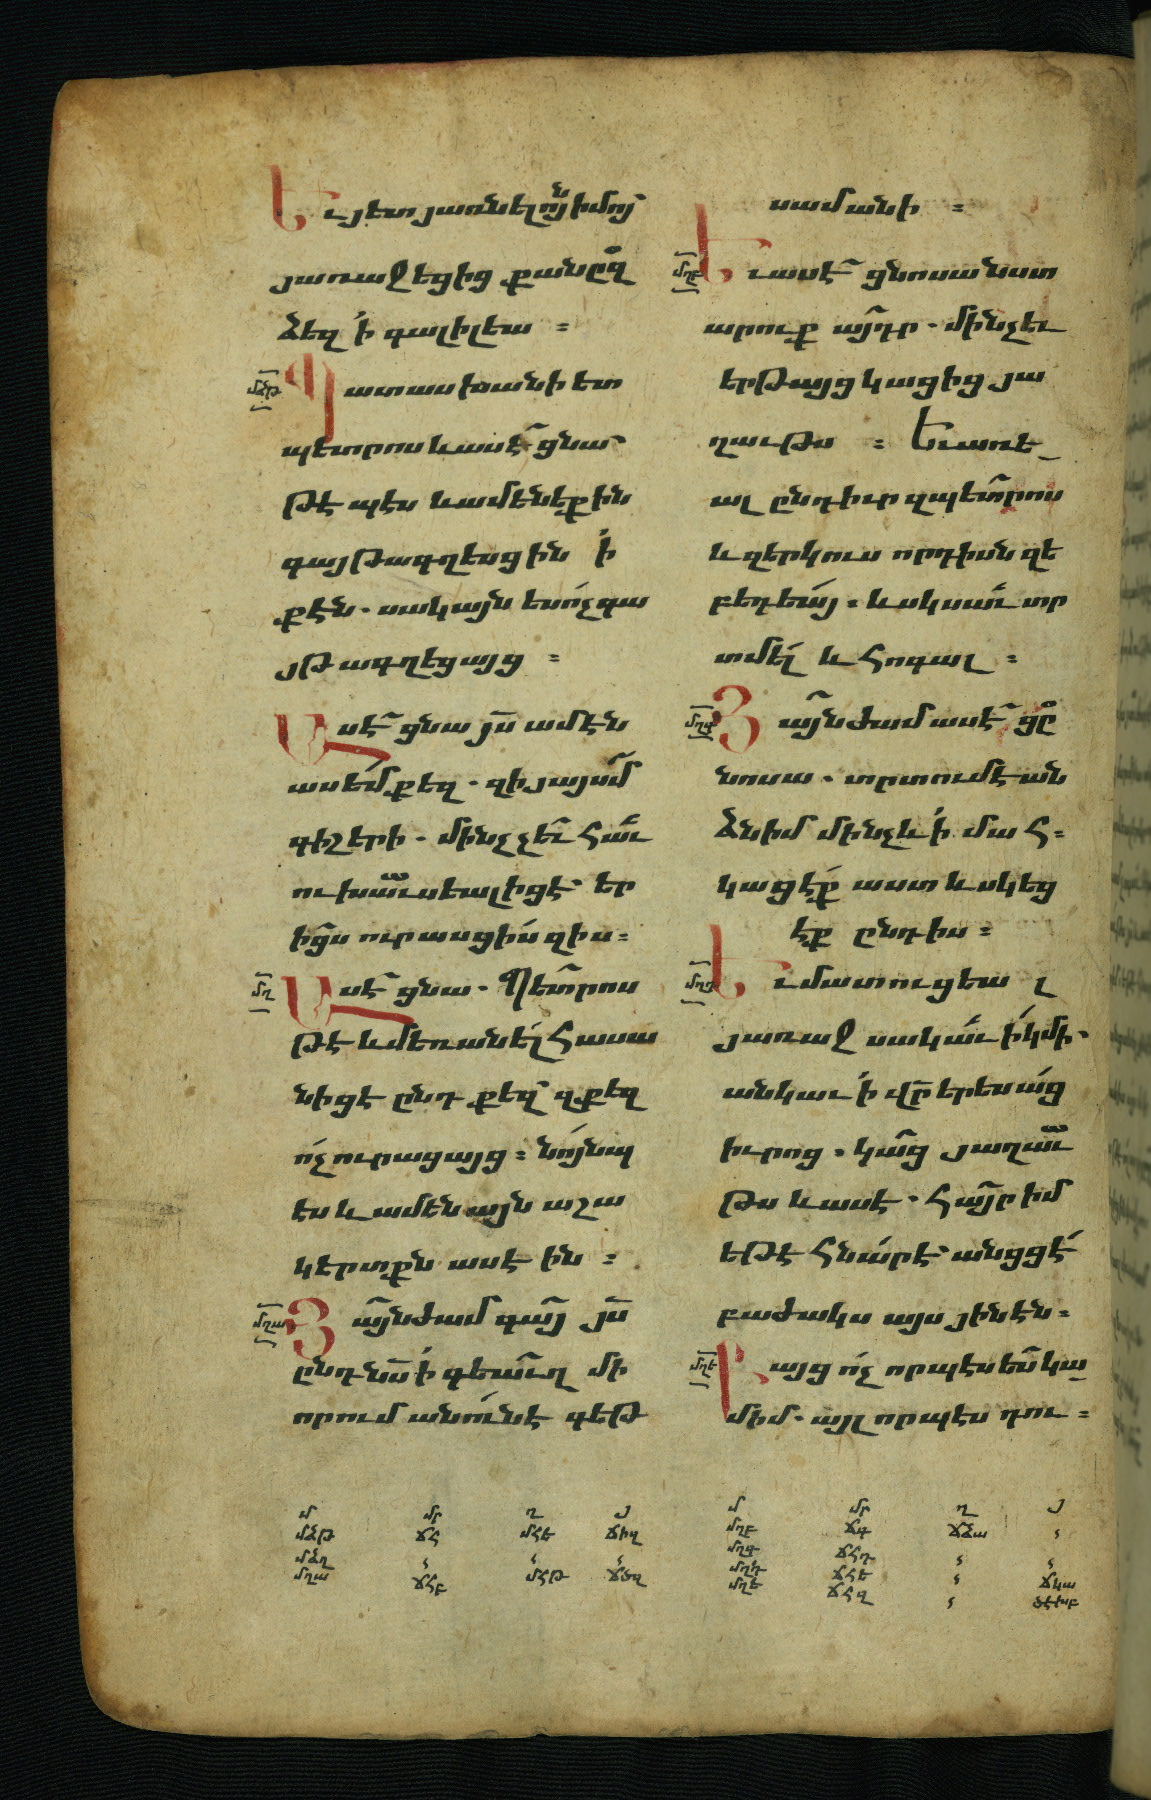 Եւ յետ յառնելոյն իմոյ
յառաջեցից քան ըզ
ձեզ ՚ի գալիլեա ։
մձթ Պատասխանի ետ
պետրոս և ասէ ցնա
թէպէտ և ամենեքին
գայթագղեսցին ՚ի
քէն . սակայն ես ոչ գա
յթագղեցայց ։
Ասէ ցնա յս ամէն
ասեմ քեզ . զի յայսմ
գիշերի . մինչչեւ հաւ
ու խաւսեալ իցէ եր
իցս ուրասցիս զիս ։
մղ Ասէ ցնա . Պետրոս
թէ և մեռանել հասա
նիցէ ընդ քեզ զքեզ
ոչ ուրացայց ։ նոյնպ
էս և ամենայն աշա
կերտքն ասէին ։
մղա Յայնժամ գայ յս
ընդ նս ՚ի գեաւղ մի
որում անուն է գեթ
սամանի ։
մղբ Եւ ասէ ցնոսա նստ
արուք այդր . մինչեւ
երթայց կացից յա
ղաւթս ։ Եւ առե
ալ ընդ իւր զպետրոս
և զերկուս որդիսն զե
բեդեայ . և սկսաւ տր
տմել և հոգալ ։
մղգ Յայնժամ ասէ ցը
նոսա . տրտում է ան
ձն իմ մինչև ՚ի մահ ։
կացէք աստ և սկեց
էք ընդ իս ։
մղդ Եւ մատուցեալ
յառաջ սակաւ իկմի .
անկաւ ՚ի վր երեսաց
իւրոց . կայց յաղաւ
թս և ասէ . Հայր իմ
եթէ հնար է անցցէ
բաժակս այս յինէն ։
մղե Բայց ոչ որպէս ես կա
միմ . այլ որպէս դու ։
մ մր ղ յ
մձթ ճՀ մՀե ճիզ
մձղ
մղա ճՀբ մՀթ ճծզ
մ մր ղ յ
մղբ ճձա
մղգ ճՀդ
մղդ ճՀե ճկա
մղե ճՀզ